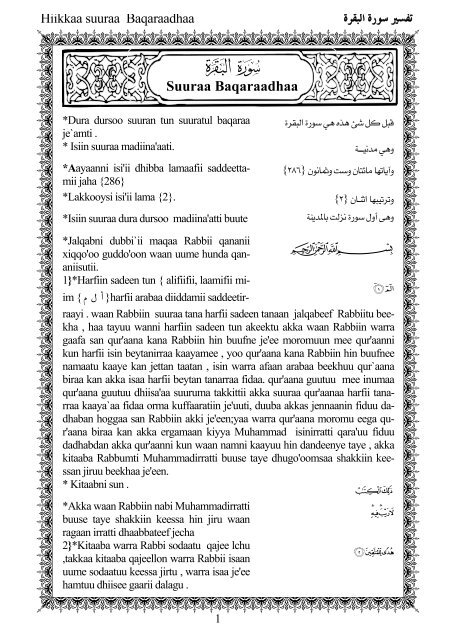 Hiikkaa suuraa Baqaraadhaa
تفسير سورة البقرة
سُورَةُ البَقَرَة
Suuraa Baqaraadhaa
*Dura dursoo suuran tun suuratul baqaraa
je`amti .
قبل كل شئ هذه هي سورة البقرة
* Isiin suuraa madiina'aati.
وهي مدنية
*Aayaanni isi'ii dhibba lamaafii saddeetta-
mii jaha {286}
وآياتها مائتان وست وثمانون {٢٨٦}
*Lakkooysi isi'ii lama {2}.
وترتيبها اثنان {٢}
*Isiin suuraa dura dursoo madiina'atti buute
وهى أول سورة نزلت بالمدينة
*Jalqabni dubbi`ii maqaa Rabbii qananii
xiqqo'oo guddo'oon waan uume hunda qan-
aniisutii.
بِسْمِ اللَّهِ الرَّحْمَٰنِ الرَّحِيمِ
1}*Harfiin sadeen tun { alifiifii, laamifii mi-
im { أ ل م }harfii arabaa diiddamii saddeetir-
الٓمٓ ١
raayi . waan Rabbiin suuraa tana harfii sadeen tanaan jalqabeef Rabbiitu bee-
kha , haa tayuu wanni harfiin sadeen tun akeektu akka waan Rabbiin warra
gaafa san qur'aana kana Rabbiin hin buufne je'ee moromuun mee qur'aanni
kun harfii isin beytanirraa kaayamee , yoo qur'aana kana Rabbiin hin buufnee
namaatu kaaye kan jettan taatan , isin warra afaan arabaa beekhuu qur`aana
biraa kan akka isaa harfii beytan tanarraa fidaa. qur'aana guutuu mee inumaa
qur'aana guutuu dhiisa'aa suuruma takkittii akka suuraa qur'aanaa harfii tana-
rraa kaaya`aa fidaa orma kuffaaratiin je'uuti, duuba akkas jennaanin fiduu da-
dhaban hoggaa san Rabbiin akki je'een;yaa warra qur'aana moromu eega qu-
r'aana biraa kan akka ergamaan kiyya Muhammad isinirratti qara'uu fiduu
dadhabdan akka qur'aanni kun waan namni kaayuu hin dandeenye taye , akka
kitaaba Rabbumti Muhammadirratti buuse taye dhugo'oomsaa shakkiin kee-
ssan jiruu beekhaa je'een.
* Kitaabni sun .
ذَٰلِكَ الْكِتَٰبُ
*Akka waan Rabbiin nabi Muhammadirratti
buuse taye shakkiin keessa hin jiru waan
ragaan irratti dhaabbateef jecha
لَا رَيْبَ فِيهِ
2}*Kitaaba warra Rabbi sodaatu qajee lchu
,takkaa kitaaba qajeellon warra Rabbii isaan
uume sodaatuu keessa jirtu , warra isaa je'ee
hamtuu dhiisee gaarii dalagu .
هُدًى لِّلْمُتَّقِينَ ٢
1